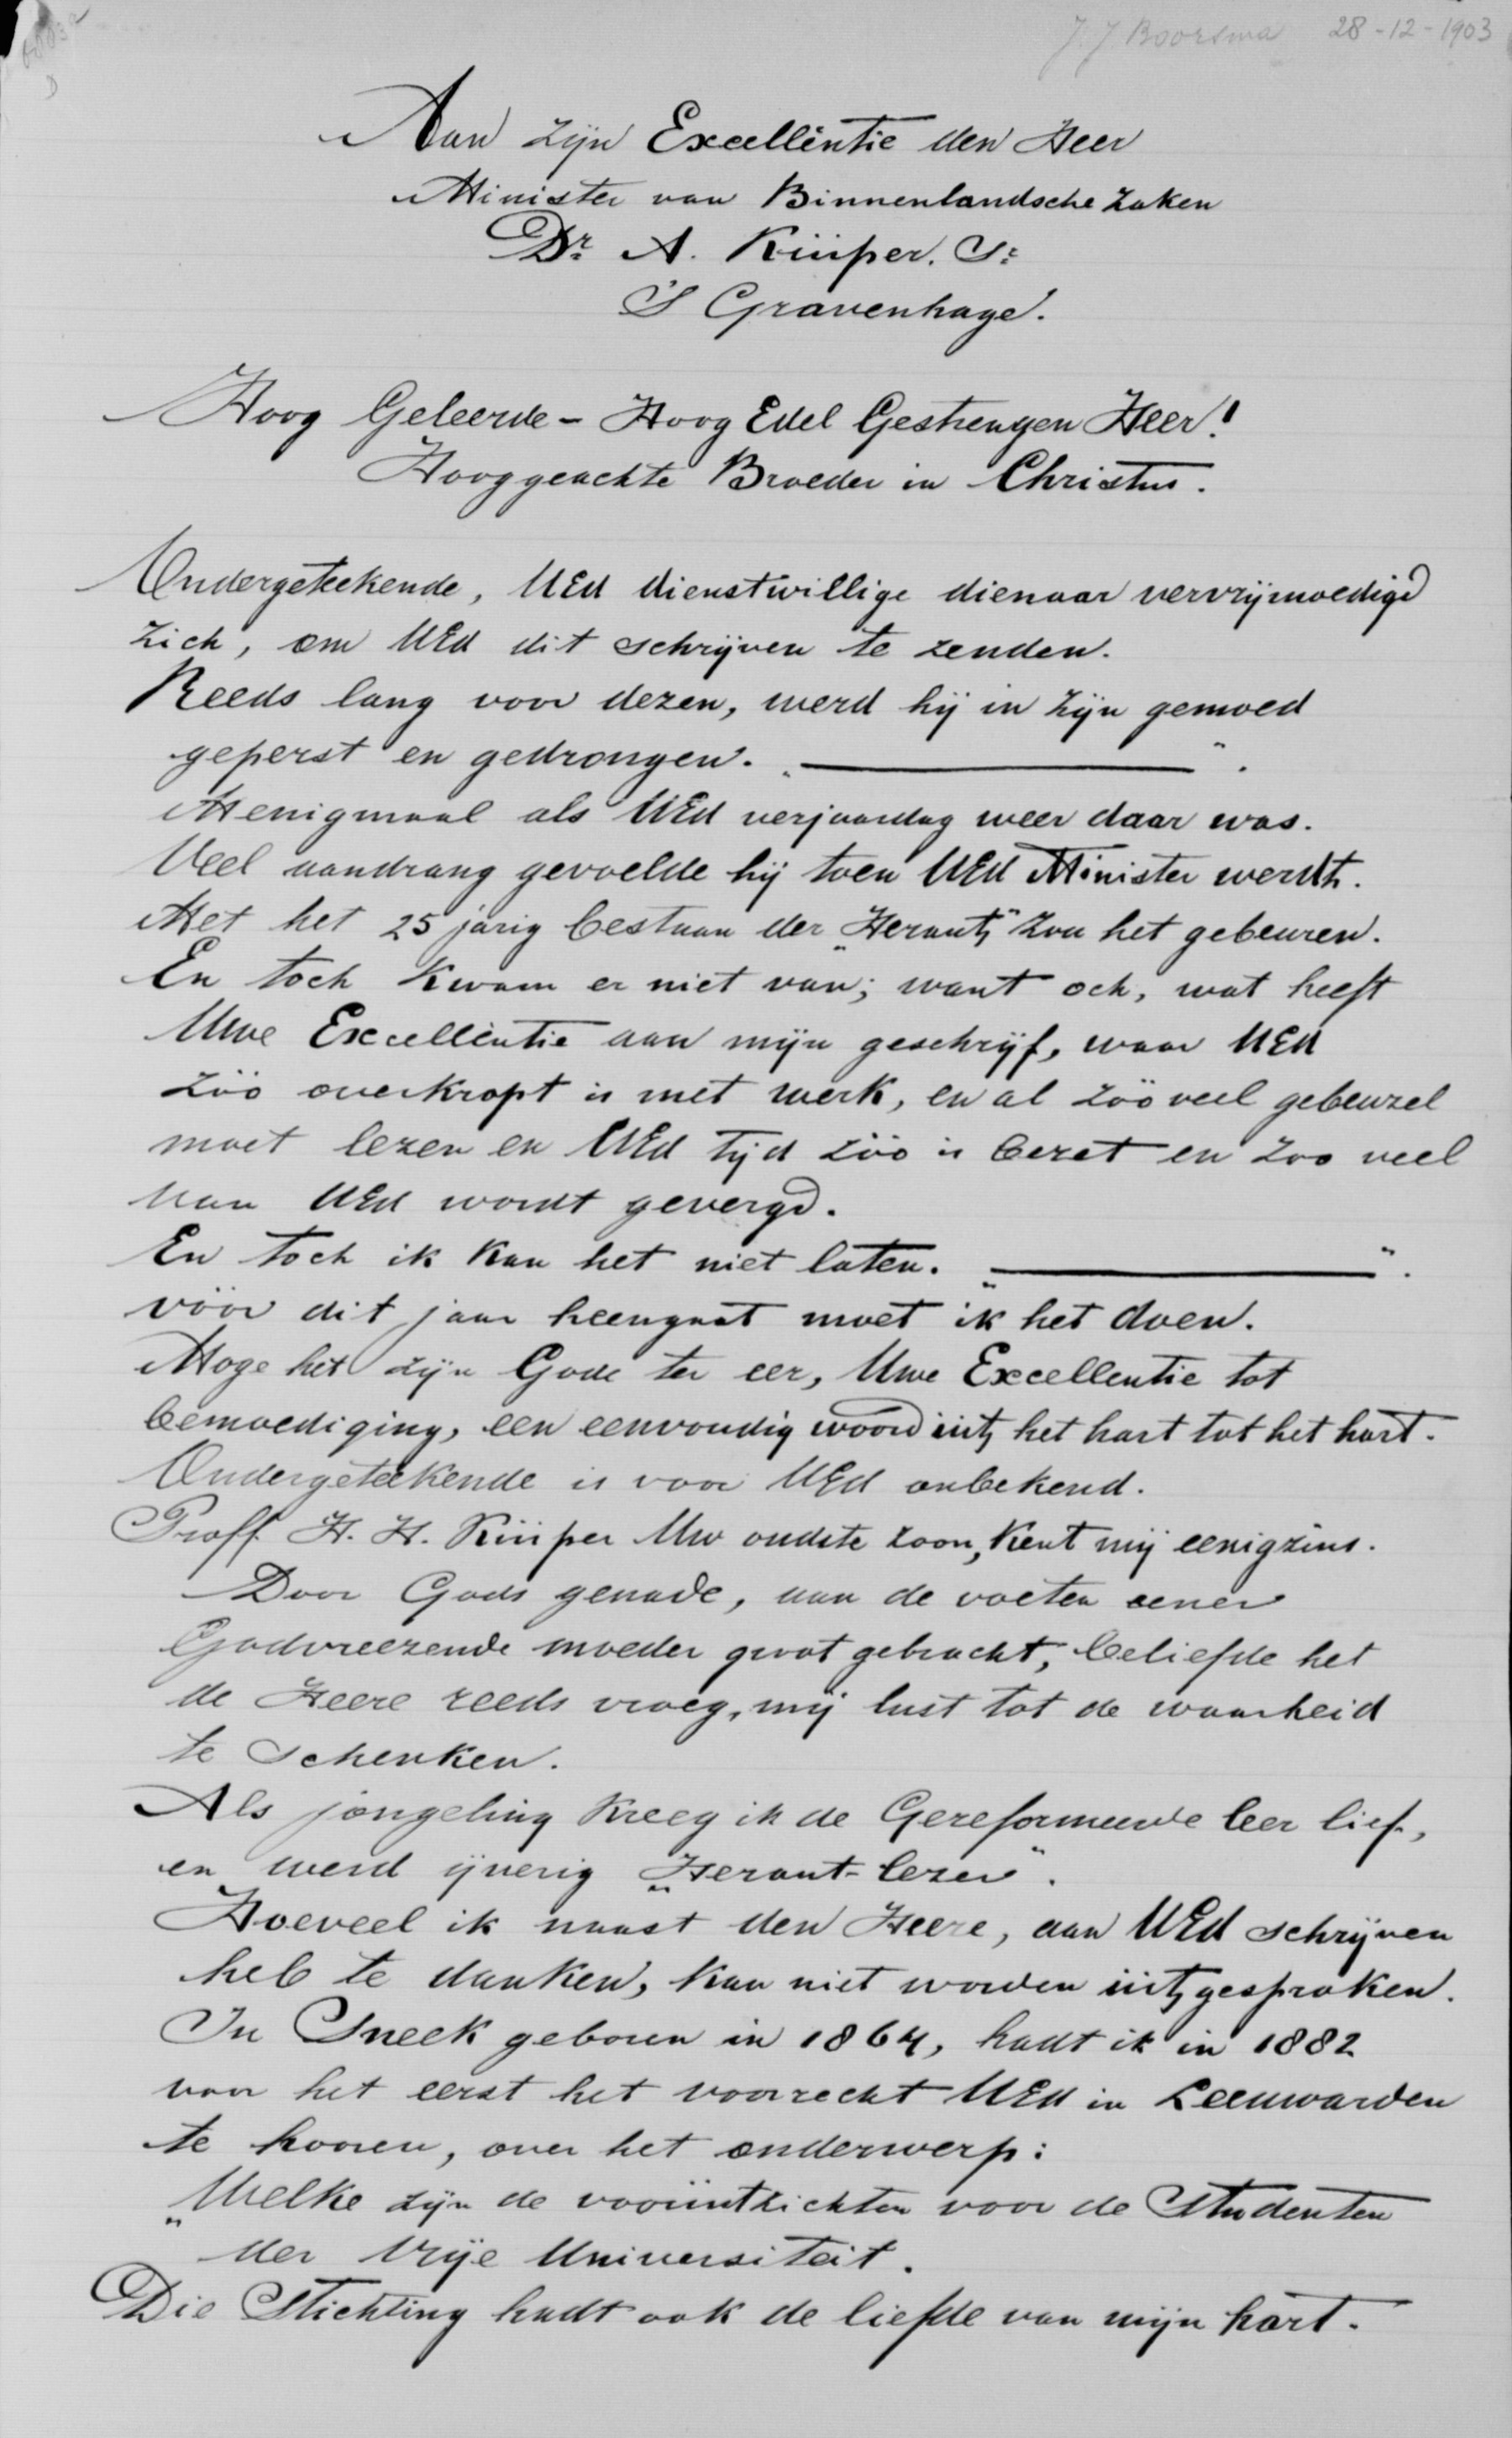 J J Boorsma 28-12-1903
Aan zijn Excellentie den Heer
Minister van Binnenlandsche Zaken
Dr. A. Küiper. Sr.
S Gravenhage.
Hoog Geleerde - Hoog Edel Gestrengen Heer!
Hooggeachte Broeder in Christus.
Ondergeteekende, UEd dienstwillige dienaar vervrijmoedigd
zich, om UEd dit schrijven te zenden.
Reeds lang voor dezen, werd hij in zijn gemoed
geperst en gedrongen. „————".
Menigmaal als UEd verjaardag weer daar was.
Veel aandrang gevoelde hij toen UEd Minister werdt.
Met het 25 jarig bestaan der „Heraut" zou het gebeuren.
En toch kwam er niet van; want och, wat heeft
Uwe Excellentie aan mijn geschrijf, waar UEd
zóó overkropt is met werk, en al zóó veel gebeuzel
moet lezen en UEd tijd zóó is bezet en zoo veel
van UEd wordt gevergd.
En toch ik kan het niet laten. „————".
vóór dit jaar heengaat moet ik het doen.
Moge het zijn Gode ter eer, Uwe Excellentie tot
bemoediging, een eenvoudig woord üit het hart tot het hart.
Ondergeteekende is voor UEd onbekend.
Proff. H. H. Küiper Uw oudste zoon, kent mij eenigzins.
Door Gods genade, aan de voeten eener
Godvreezende moeder groot gebracht, beliefde het
de Heere reeds vroeg, mij lust tot de waarheid
te schenken.
Als jongeling kreeg ik de Gereformeerde leer lief,
en werd ijverig „Heraut-lezer".
Hoeveel ik naast den Heere, aan UEd schrijven
heb te danken, kan niet worden üitgesproken.
In Sneek geboren in 1864, hadt ik in 1882
voor het eerst het voorrecht UEd in Leeuwarden
te hooren, over het onderwerp:
„Welke zijn de vooruitzichten voor de Studenten
der Vrije Universiteit.
Die Stichting hadt ook de liefde van mijn hart.